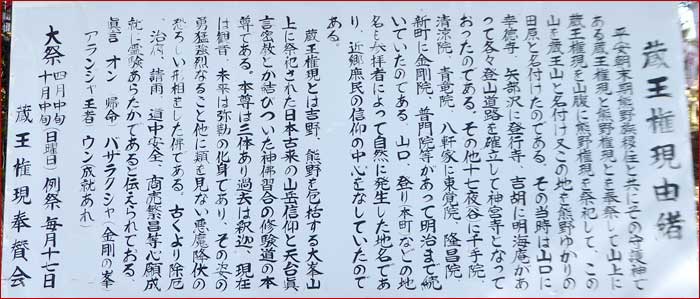 蔵王権現由緒
平安朝末期熊野族移住と共にその守護神で
ある蔵王権現と熊野権現とを奉祭して山上に
蔵王権現を山腹に熊野権現を祭祀して、この
山を蔵王山と名付け又この地を熊野ゆかりの
田原と名付けたのである。その当時は山口に
幸徳寺、矢部沢に登行寺、吉胡に明海庵があ
って各々登山道路を確立して神宮寺となって
おったのである。その他十七夜谷に千手院、
清涼院、青竜院、八軒家に東覚院、隆昌院
新町に金剛院、普門院等があって明治まで続
いていたのである。山口、登り(本町などの地
名も参拝者によって自然に発生した地名であ
り、近郷庶民の信仰の中心をなしていたので
ある。
蔵王権現とは吉野、熊野を包括する大峯山
上に祭祀された日本古来の山岳信仰と天台真
言密教とが結びついた神佛習合の修験道の本
尊である。本尊は三体あり過去は釈迦、現在
は観音、未来は弥勒の化身であり、その姿の
勇猛強烈なること他に類を見ない悪魔降伏の
恐ろしい形相をした佛である。古くより除厄
、治病、請雨、道中安全、商売繁昌等心願成
就に霊験あらたかであると伝えられておる。
眞言 オン(帰命)バサラクシャ(金剛の峯
アランジャ王者 ウン(成就あれ)
大祭 四月中旬
十月中旬(日曜日) 例祭 毎月十七日
蔵王権現奉賛会